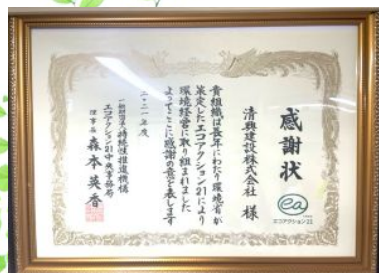 感謝状
エコアクション21
清興建設株式会社 様
貴組織は長年にわたり環境省が
策定したエコアクション21により
環境経営に取り組まれました
よってここに感謝の意を表します
二〇二一年度
一般財団法人持続性推進機構
エコアクション21中央事務局
理事長 森本英香